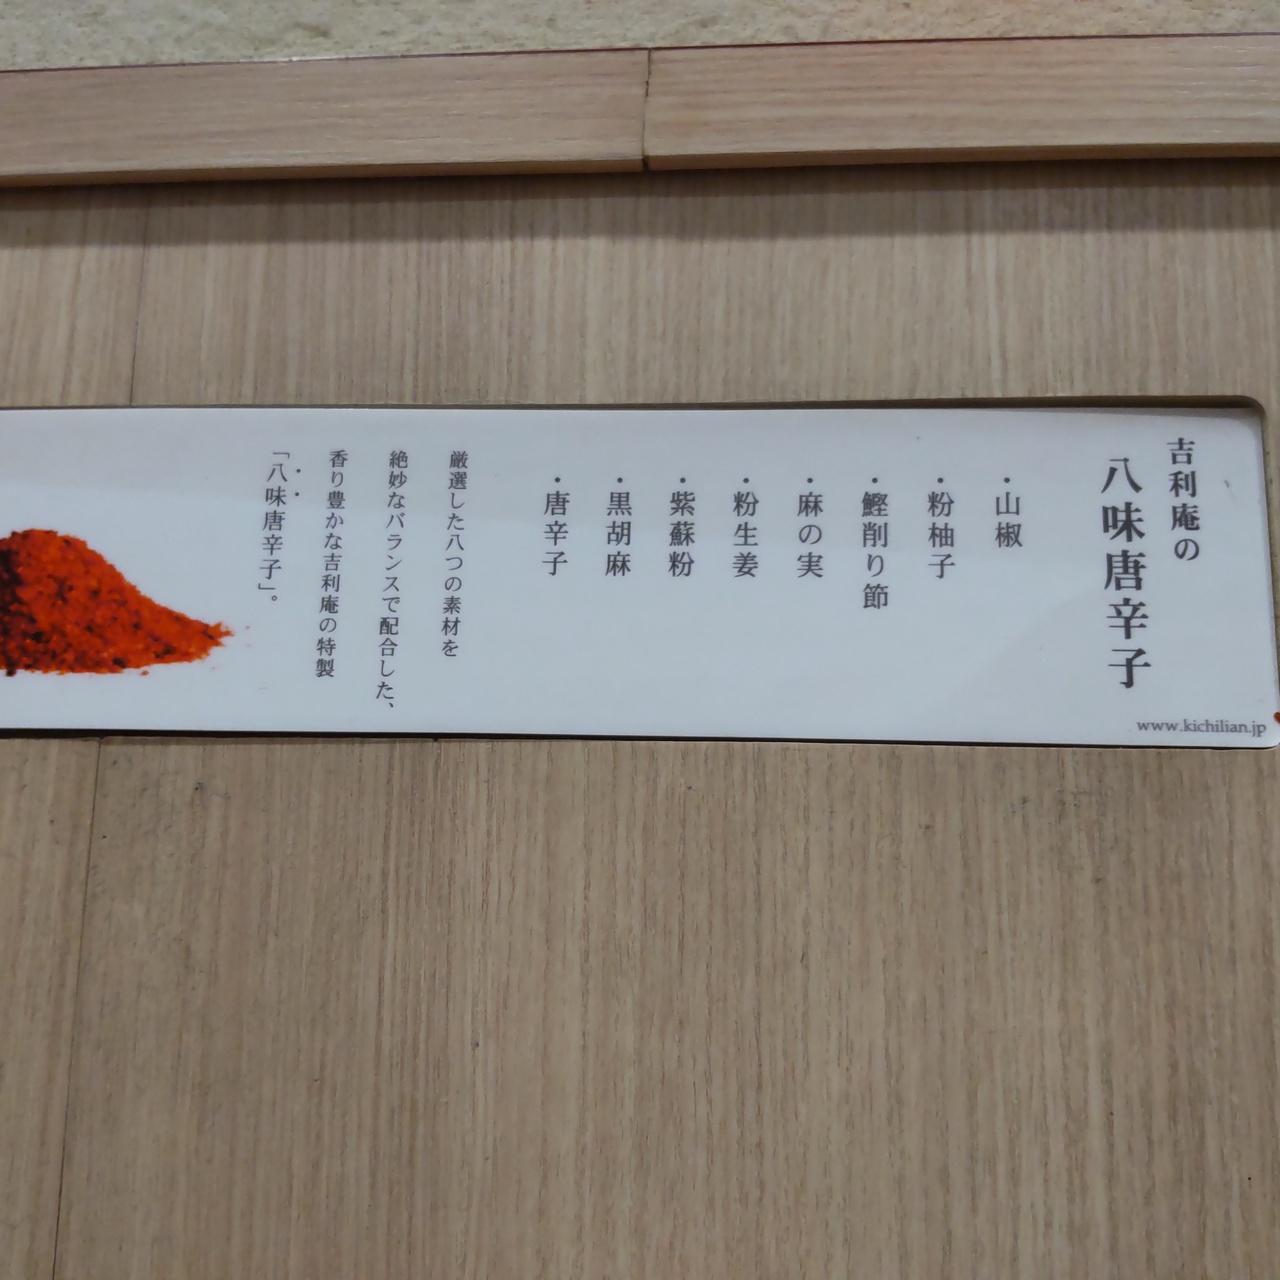 吉利庵の
八味唐辛子
・山椒
・粉柚子
・鰹削り節
・麻の実
・粉生姜
・紫蘇粉
・黒胡麻
・唐辛子
厳選した八つの素材を
絶妙なバランスで配合した、
香り豊かな吉利庵の特製
「八味唐辛子」。
www.kichilian.jp